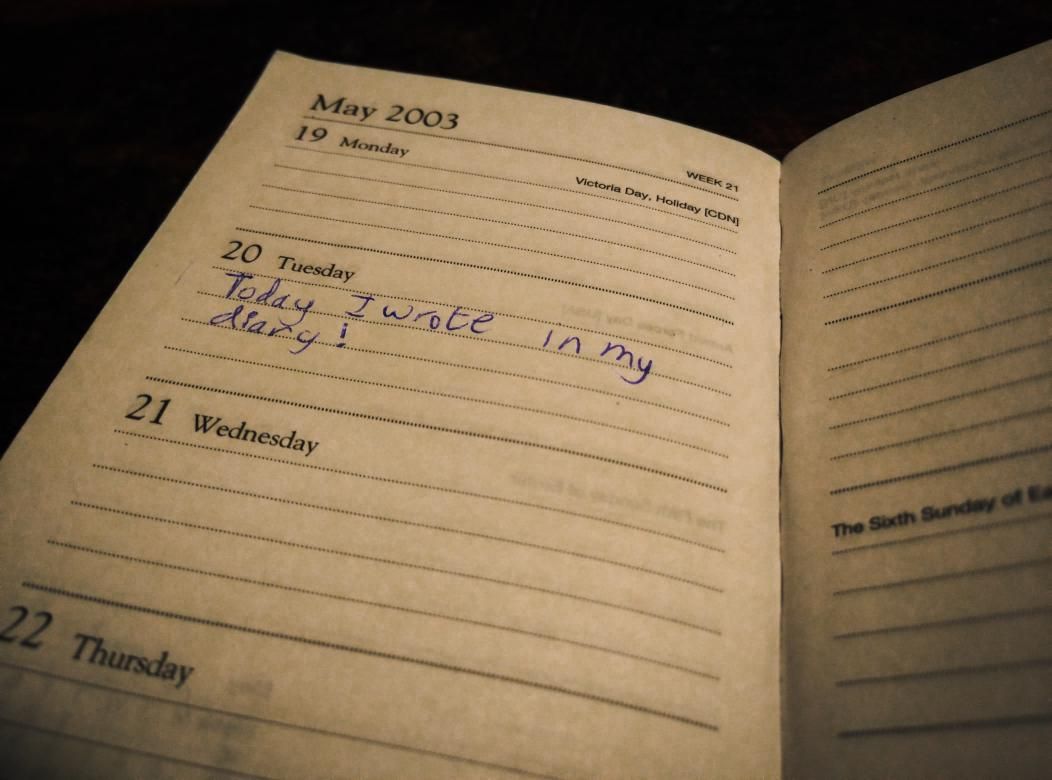 May 2003
19 Monday
WEEK 21
Victoria Day, Holiday [CDN]
20 Tuesday
Today I wrote in my
diary!
21 Wednesday
22 Thursday
The Sixth Sunday of